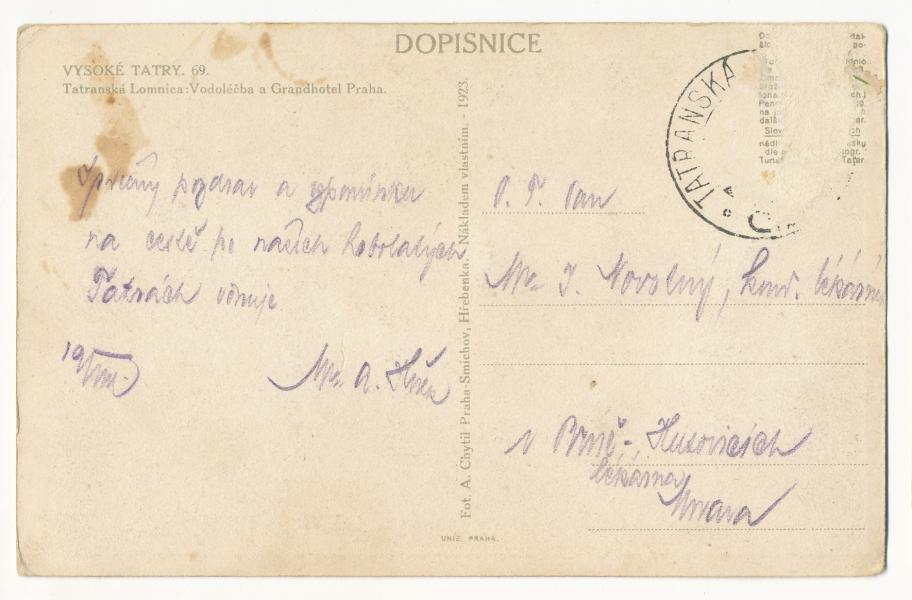 DOPISNICE
VYSOKÉ TATRY. 69.
Tatranská Lomnica: Vodoléčba a Grandhotel Praha.
Fot. A. Chytil Praha-Smíchov, Hřebenka. Nákladem vlastním. - 1923.
TATRANSKÁ
pozdrav a vzpomínku
na cestě po našich
Tatrách věnuje
Mr. A.
P. T. Pan
Mr. J. Novotný, kand. lékárn
v Brně-Husovicích
lékárna
UNIE PRAHA.